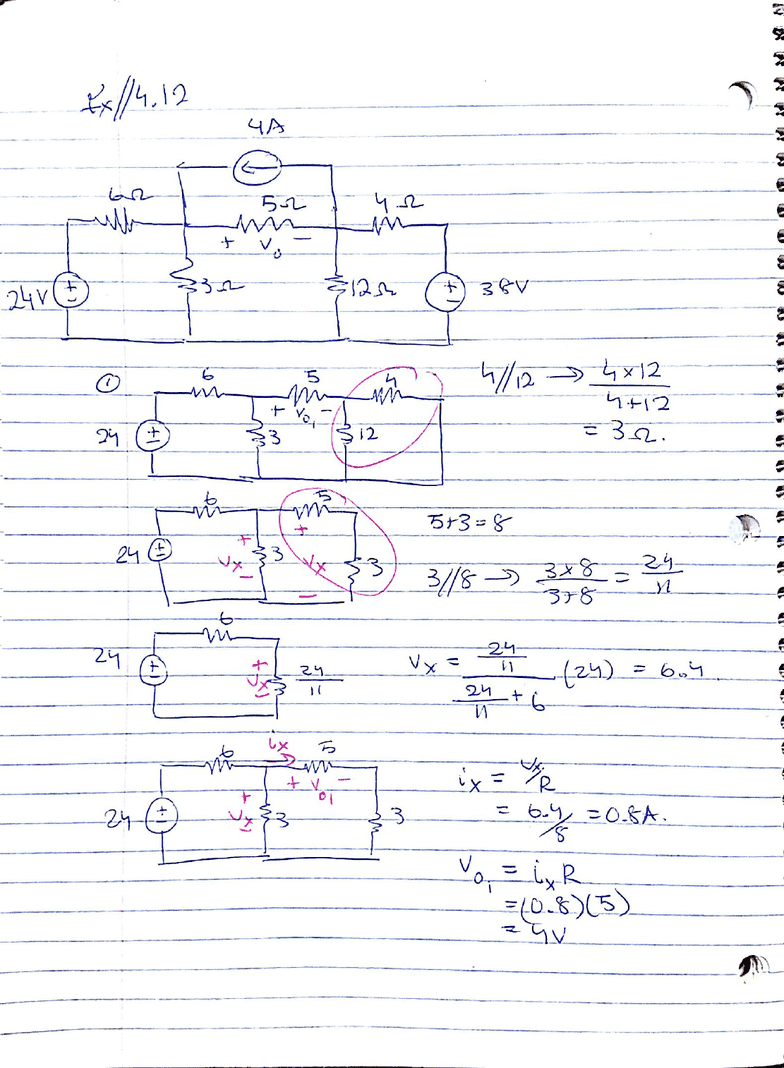 Ex//4.12
4A
6Ω 5Ω 4Ω
+ Vo −
24V + − 3Ω 12Ω + − 38V
① 6 5 4 4//12 → 4×12/4+12
+ Vo1 −
24 + − 3 12 = 3Ω.
6 5 5+3=8
24 + − + Vx − 3 + Vx − 3 3//8 → 3×8/3+8 = 24/11
6
24 + − + Vx − 24/11 Vx = 24/11 / 24/11 + 6 (24) = 6.4
6 ix 5 ix = Vx/R
+ Vo1 −
24 + − + Vx − 3 3 = 6.4/8 = 0.8A.
Vo1 = ix R
= (0.8)(5)
= 4V